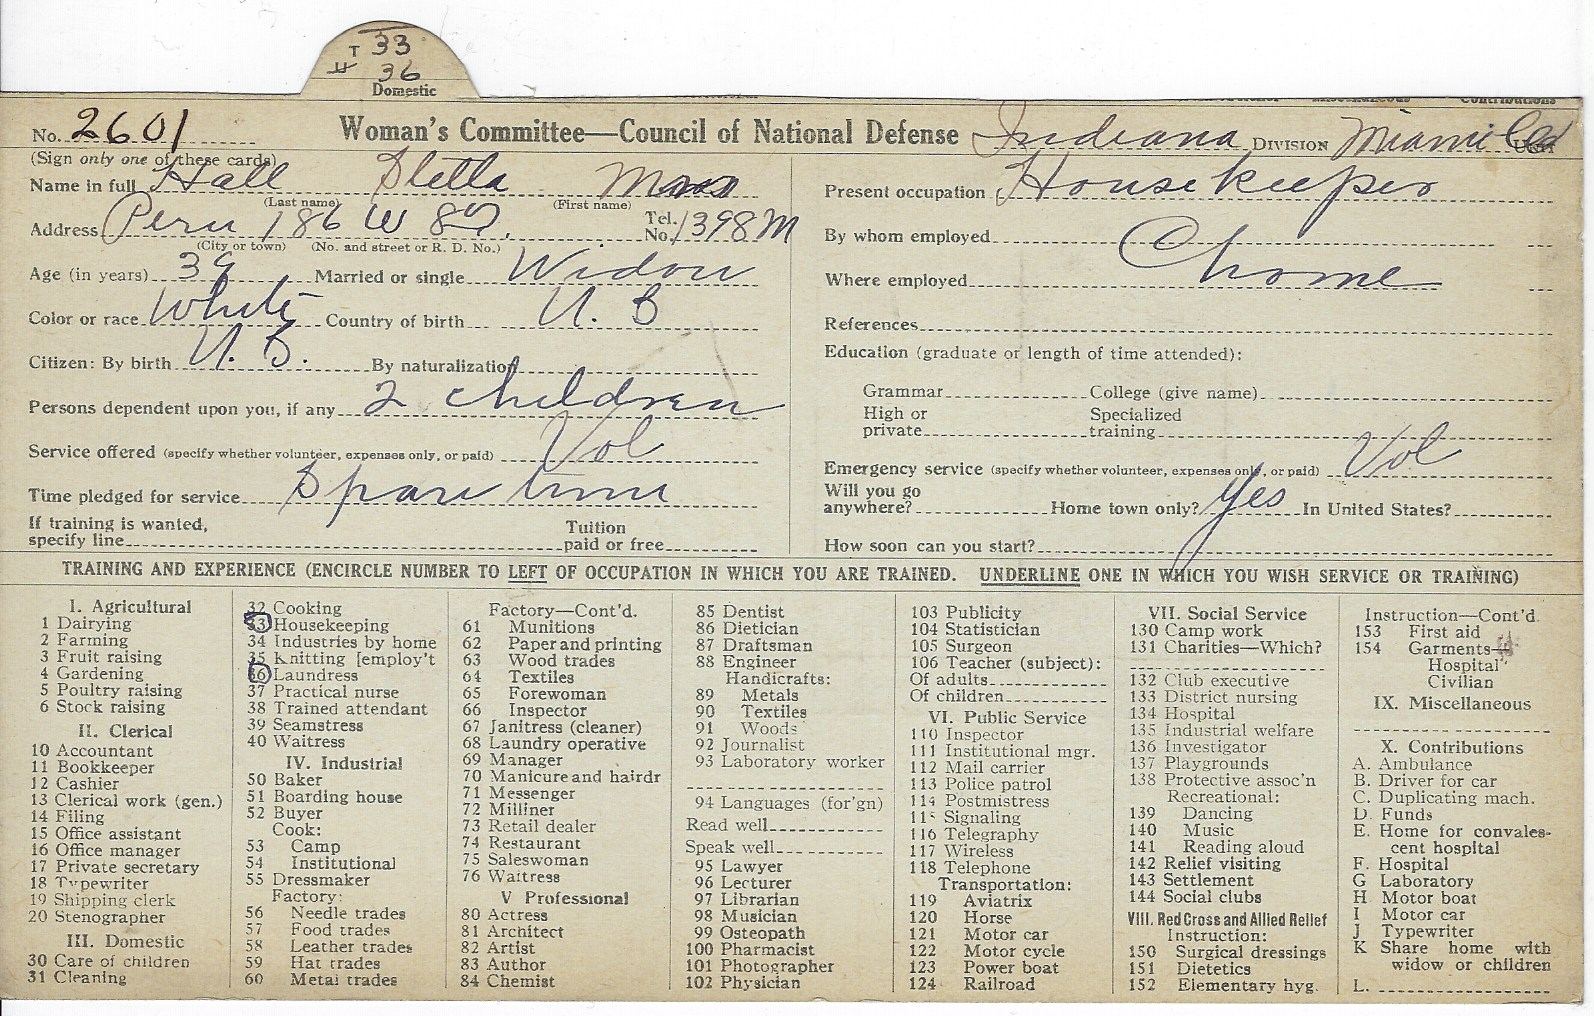 T 33
H 36
Domestic
No. 2601 Woman's Committee—Council of National Defense Indiana DIVISION Miami Co UNIT
(Sign only one of these cards)
Name in full Hall Stella
(Last name) (First name)
Address Peru 186 W 8th. Tel. No. 1398 M
(City or town) (No. and street or R. D. No.)
Age (in years) 39 Married or single Widow
Color or race White Country of birth U. S
Citizen: By birth U. S. By naturalization
Persons dependent upon you, if any 2 children
Service offered (specify whether volunteer, expenses only, or paid) Vol
Time pledged for service Spare time
If training is wanted,
specify line Tuition paid or free
Present occupation Housekeeper
By whom employed
Where employed @ home
References
Education (graduate or length of time attended):
Grammar College (give name)
High or private Specialized training
Emergency service (specify whether volunteer, expenses only, or paid) Vol
Will you go
anywhere? Home town only? Yes In United States?
How soon can you start?
TRAINING AND EXPERIENCE (ENCIRCLE NUMBER TO LEFT OF OCCUPATION IN WHICH YOU ARE TRAINED. UNDERLINE ONE IN WHICH YOU WISH SERVICE OR TRAINING)
I. Agricultural
1 Dairying
2 Farming
3 Fruit raising
4 Gardening
5 Poultry raising
6 Stock raising
II. Clerical
10 Accountant
11 Bookkeeper
12 Cashier
13 Clerical work (gen.)
14 Filing
15 Office assistant
16 Office manager
17 Private secretary
18 Typewriter
19 Shipping clerk
20 Stenographer
III. Domestic
30 Care of children
31 Cleaning
32 Cooking
33 Housekeeping
34 Industries by home
35 Knitting [employ't
36 Laundress
37 Practical nurse
38 Trained attendant
39 Seamstress
40 Waitress
IV. Industrial
50 Baker
51 Boarding house
52 Buyer
Cook:
53 Camp
54 Institutional
55 Dressmaker
Factory:
56 Needle trades
57 Food trades
58 Leather trades
59 Hat trades
60 Metal trades
Factory—Cont'd.
61 Munitions
62 Paper and printing
63 Wood trades
64 Textiles
65 Forewoman
66 Inspector
67 Janitress (cleaner)
68 Laundry operative
69 Manager
70 Manicure and hairdr
71 Messenger
72 Milliner
73 Retail dealer
74 Restaurant
75 Saleswoman
76 Waitress
V Professional
80 Actress
81 Architect
82 Artist
83 Author
84 Chemist
85 Dentist
86 Dietician
87 Draftsman
88 Engineer
Handicrafts:
89 Metals
90 Textiles
91 Woods
92 Journalist
93 Laboratory worker
94 Languages (for'gn)
Read well
Speak well
95 Lawyer
96 Lecturer
97 Librarian
98 Musician
99 Osteopath
100 Pharmacist
101 Photographer
102 Physician
103 Publicity
104 Statistician
105 Surgeon
106 Teacher (subject):
Of adults
Of children
VI. Public Service
110 Inspector
111 Institutional mgr.
112 Mail carrier
113 Police patrol
114 Postmistress
115 Signaling
116 Telegraphy
117 Wireless
118 Telephone
Transportation:
119 Aviatrix
120 Horse
121 Motor car
122 Motor cycle
123 Power boat
124 Railroad
VII. Social Service
130 Camp work
131 Charities—Which?
132 Club executive
133 District nursing
134 Hospital
135 Industrial welfare
136 Investigator
137 Playgrounds
138 Protective assoc'n
Recreational:
139 Dancing
140 Music
141 Reading aloud
142 Relief visiting
143 Settlement
144 Social clubs
VIII. Red Cross and Allied Relief
Instruction:
150 Surgical dressings
151 Dietetics
152 Elementary hyg.
Instruction—Cont'd.
153 First aid
154 Garments—
Hospital
Civilian
IX. Miscellaneous
X. Contributions
A. Ambulance
B. Driver for car
C. Duplicating mach.
D. Funds
E. Home for convales-
cent hospital
F. Hospital
G Laboratory
H Motor boat
I Motor car
J Typewriter
K Share home with
widow or children
L.